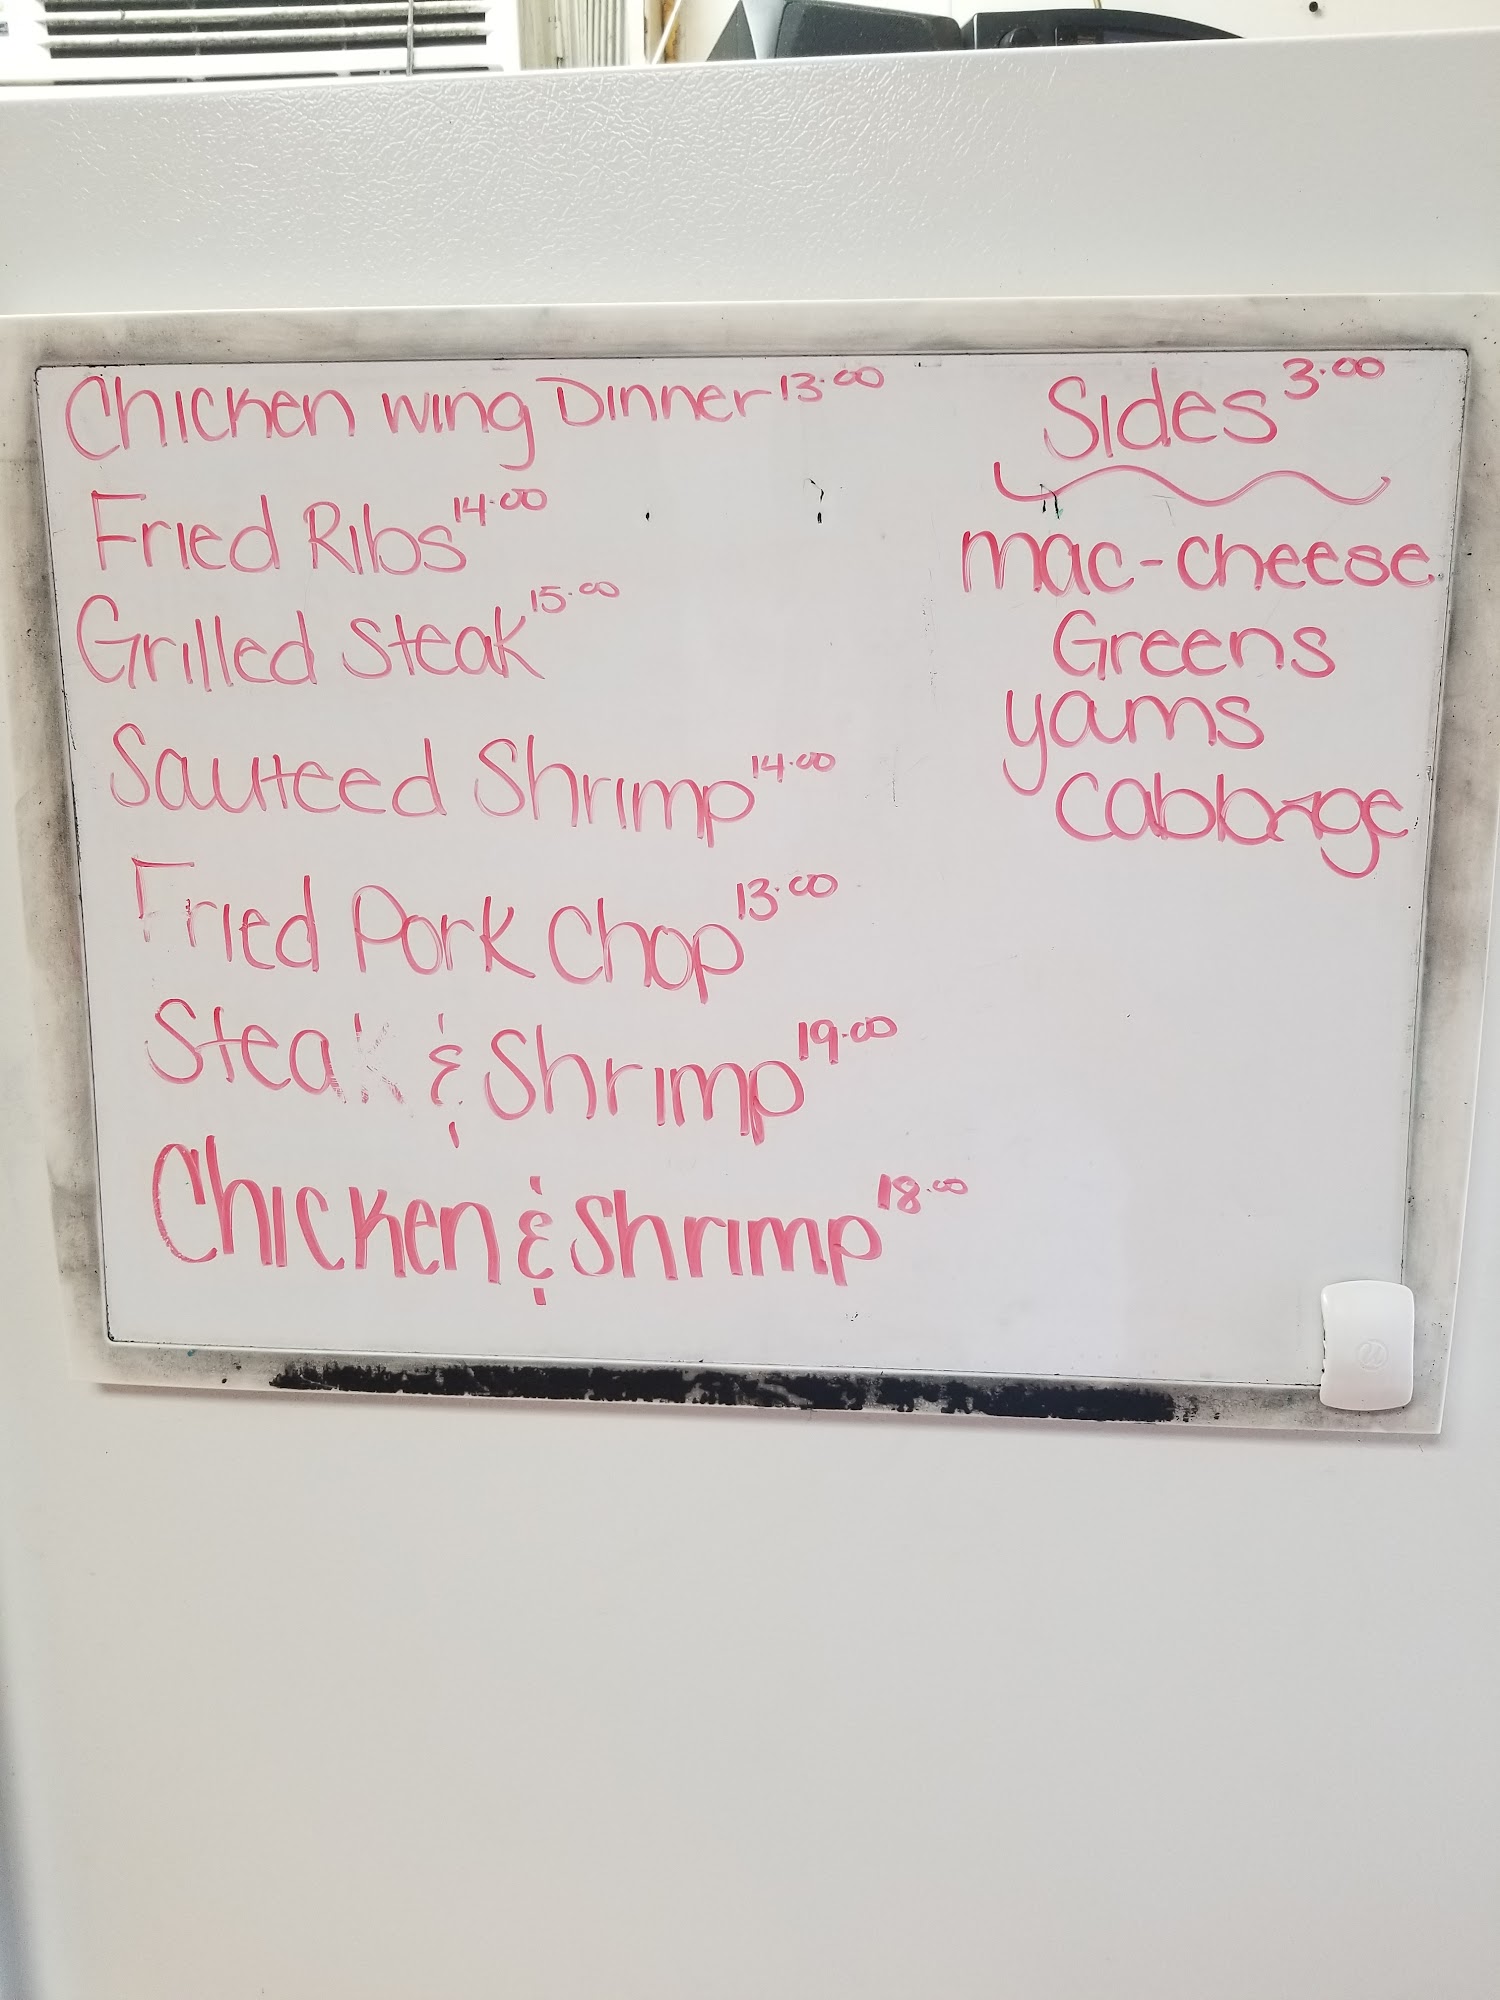 Chicken Wing Dinner 13.00
Fried Ribs 14.00
Grilled Steak 15.00
Sauteed Shrimp 14.00
Fried Pork Chop 13.00
Steak & Shrimp 19.00
Chicken & Shrimp 18.00
Sides 3.00
mac-cheese
Greens
yams
cabbage